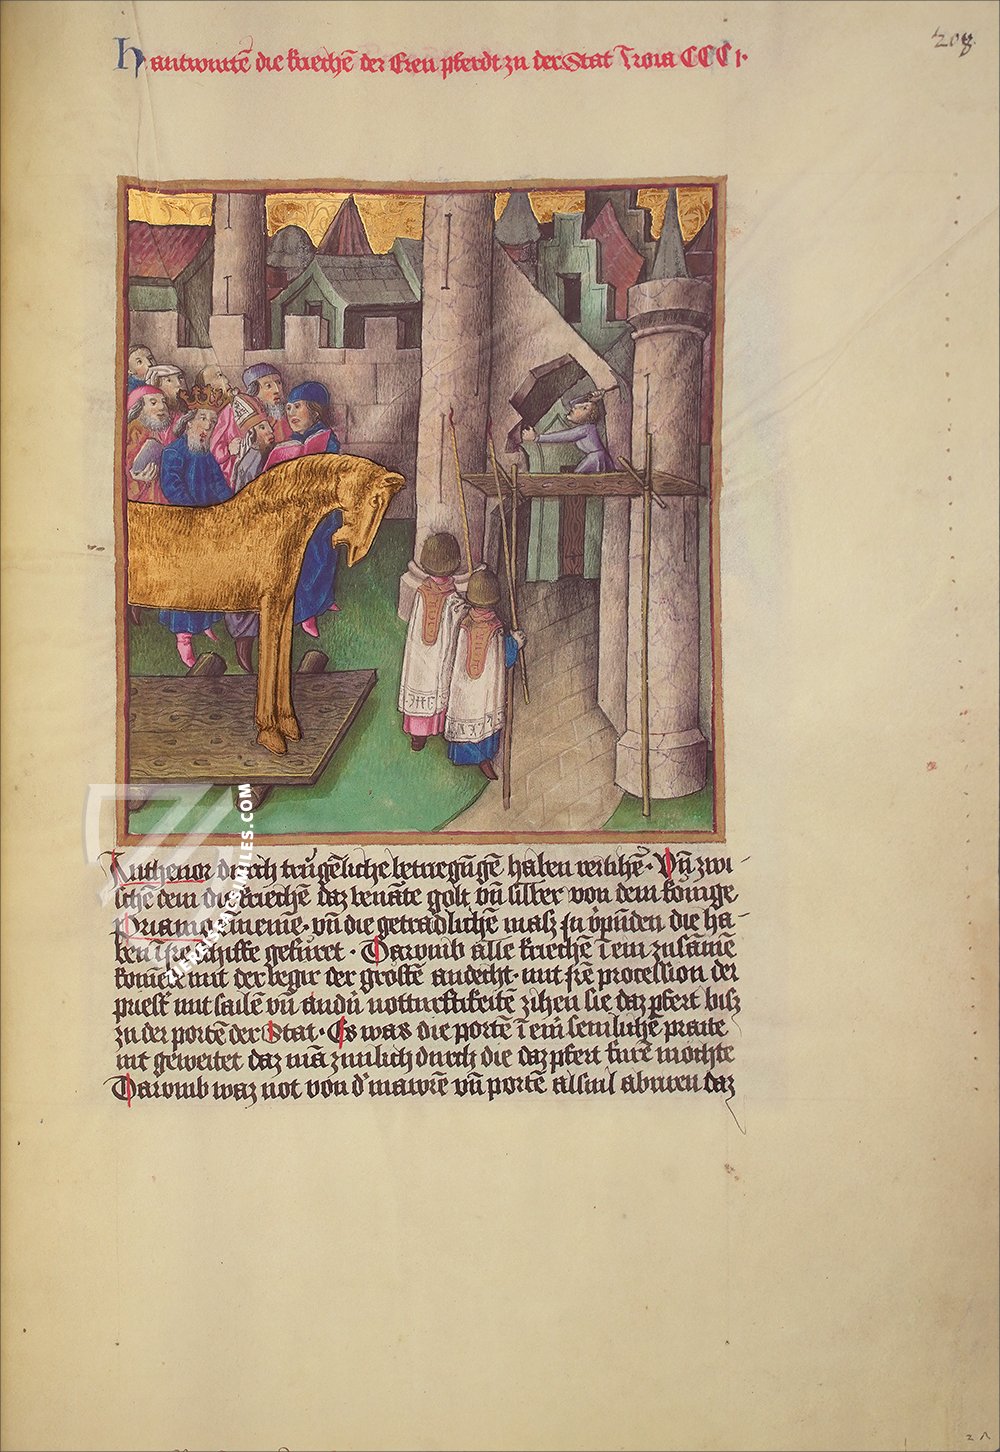 Hie antwurtē die kriechē der Eren pferdt zu der Stat Troia CCCI·
208
Anthenor durch trugēliche betriegūgē haben verlihē· Vn̄ zwi-
schē dem die kriechē daz benāte golt vn̄ silber von dem könige
Priamo nemē· vn̄ die getraidlichē masz die ha-
ben ī ire schiffe gefüret· Darvmb alle kriechē ī ein zusāmē
komēde mit der begir der gröstē andecht· mit procession der
priest mit sailē vn̄ notturftikeitē zihen sie daz pfert bisz
zu der portē der Stat· Es was die portē ī semlichē praite
nit geweitet daz mā zimlich durch die daz pfert furē möchte
Darvmb waz not von d' mawrē vn̄ portē alsuil daz
ZIEREIS FACSIMILES.COM